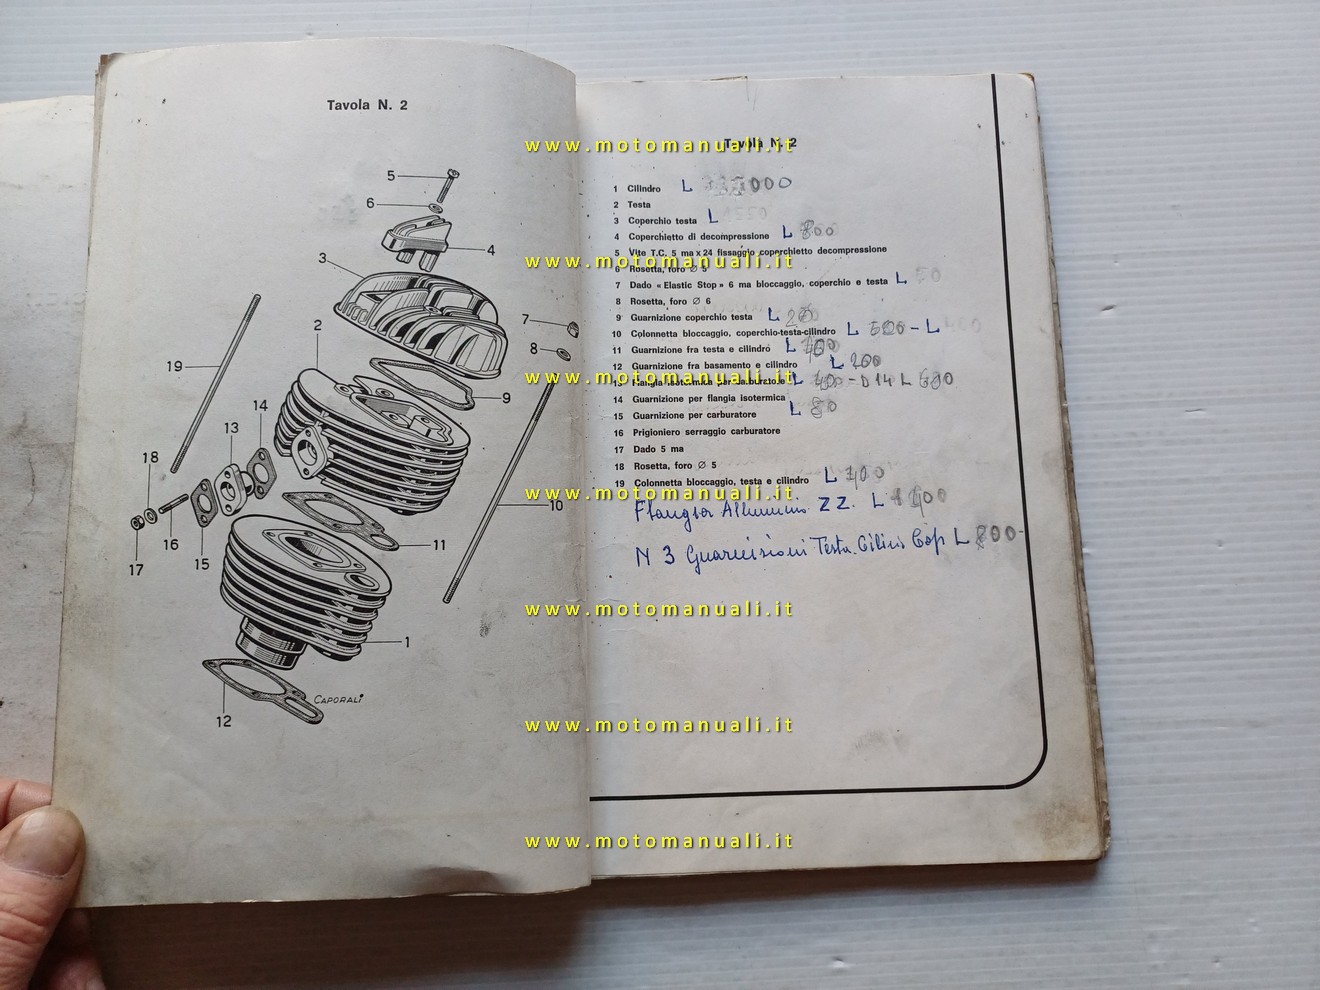 Tavola N. 2
5
6
4
3
2
7
8
19
9
14
13
18
10
11
16
17
15
1
12
CAPORALI
Tavola N. 2
1 Cilindro L 000
2 Testa
3 Coperchio testa L
4 Coperchietto di decompressione L 800
5 Vite T.C. 5 ma x 24 fissaggio coperchietto decompressione
6 Rosetta, foro ∅ 5
7 Dado « Elastic Stop » 6 ma bloccaggio, coperchio e testa L
8 Rosetta, foro ∅ 6
9 Guarnizione coperchio testa L
10 Colonnetta bloccaggio, coperchio-testa-cilindro L - L
11 Guarnizione fra testa e cilindro L
12 Guarnizione fra basamento e cilindro L 200
13 Flangia isotermica per carburatore L - D 14 L
14 Guarnizione per flangia isotermica
15 Guarnizione per carburatore L
16 Prigioniero serraggio carburatore
17 Dado 5 ma
18 Rosetta, foro ∅ 5
19 Colonnetta bloccaggio, testa e cilindro L
Flangia Alluminio ZZ. L
N 3 Guarnizioni Testa Cilin Cop L 800-
www.motomanuali.it
www.motomanuali.it
www.motomanuali.it
www.motomanuali.it
www.motomanuali.it
www.motomanuali.it
www.motomanuali.it